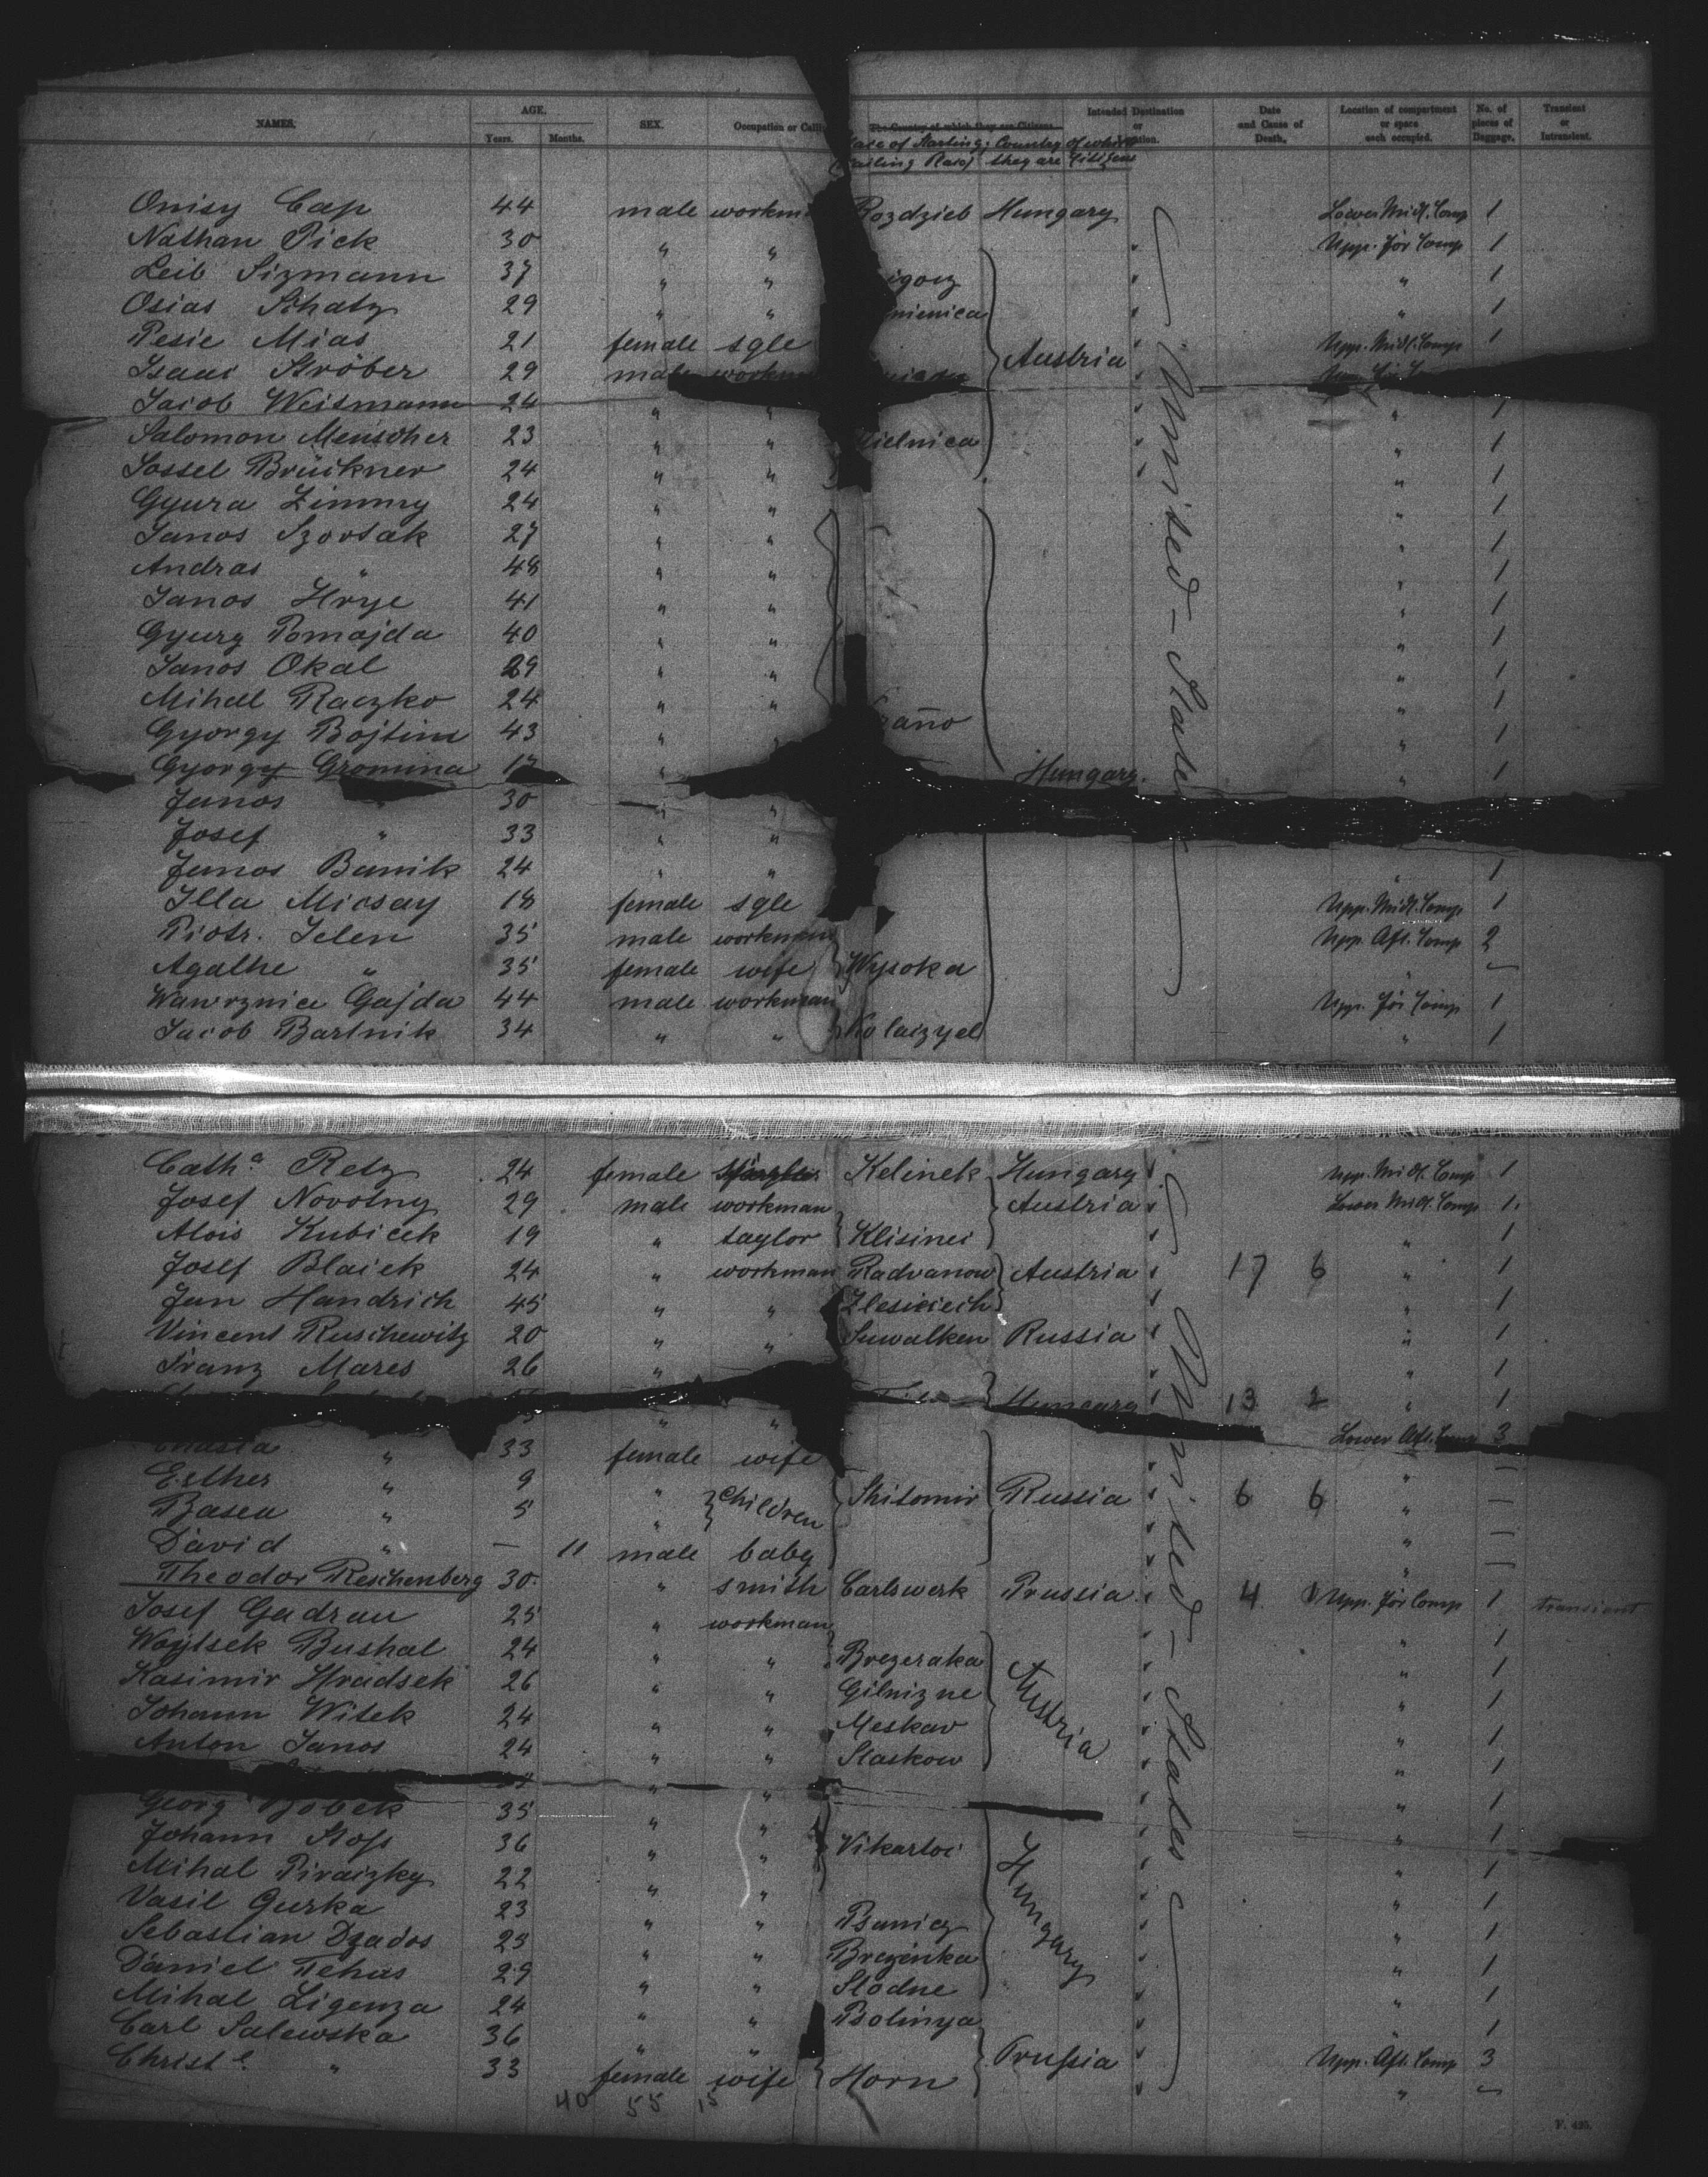 NAMES. AGE. SEX. Occupation or Calli The Country of which they are Citizens. Intended Destination or Location. Date and Cause of Death. Location of compartment or space each occupied. No. of pieces of Baggage. Transient or Intransient.
Years. Months.
Place of Starting; Country of which
(Railing Race) they are Citizens
Onisy Cap 44 male workm Rozdzieb Hungary Lower Midl. Comp 1
Nathan Pick 30 " " " Upp. for Comp 1
Leib Sizmann 37 " " igorz " " 1
Osias Schatz 29 " " nienica " " 1
Pesie Mias 21 female sgle Austria " Upp. Midl. Comp 1
Isaac Ströber 29 male workm "
Jacob Weitmann 24 " " " " 1
Salomon Menscher 23 " " Zielnica " " 1
Jossel Brückner 24 " " " " 1
Gyura Zimmy 24 " " " 1
Janos Szovsak 27 " " " 1
Andras " 48 " " " 1
Janos Hrye 41 " " " 1
Gyurg Pomajda 40 " " " 1
Janos Okal 29 " " " 1
Mihal Raczko 24 " " " 1
Gyorgy Bojtim 43 " " " 1
Gyorgy Gromina 17 " Hungary " 1
Janos " 30 " "
Josef " 33 " "
Janos Banik 24 " " " 1
Illa Micsay 18 female sgle Upp. Midl. Comp 1
Piotr. Jelen 35 male workman Upp. Aft. Comp 2
Agathe " 35 female wife Wysoka " —
Wawrznice Gajda 44 male workman Upp. for Comp 1
Jacob Bartnik 34 " " Kolaizyel " 1
United States
Cath.a Retz 24 female Kelinek Hungary " Upp. Midl. Comp 1
Josef Novotny 29 male workman Austria " Lower Midl. Comp 1
Alois Kubicek 19 " taylor Klisinei " " 1
Josef Blaick 24 " workman Radvanow Austria " 17 6 " 1
Jan Handrich 45 " " Zlesiciech " " 1
Vincent Ruschewitz 20 " " Suwalken Russia " " 1
Franz Mares 26 " " " 1
Hungary " 13 2 " 1
" " Lower Aft. Comp 3
Chasia " 33 female wife " " —
Esther " 9 " children Shitomir Russia " 6 6 " —
Basea " 5 " " " —
David " — 11 male baby " " —
Theodor Reschenberg 30 " smith Carlswerk Prussia " 4 Upp. for Comp 1 transient
Josef Gadrau 25 " workman " " 1
Woytsek Bushal 24 " " Brezeraka " " 1
Kasimir Hradsek 26 " " Gilnizne Austria " " 1
Johann Witek 24 " " Meskav " " 1
Anton Janos 24 " " Slaskow " " 1
" " " " 1
Georg Bobek 35 " " " " 1
Johann Stoss 36 " " Vikartoi " " 1
Mihal Piraizky 22 " " Hungary " " 1
Vasil Gurka 23 " " Banicz " " 1
Sebastian Dzados 23 " " Brezinka " " 1
Daniel Tehas 29 " " Slodne " " 1
Mihal Ligenza 24 " " Bolinya " " 1
Carl Salewska 36 " " Prussia " Upp. Aft. Comp 3
Christ.e " 33 female wife Horn " " —
United States
40 55 15
F. 425.